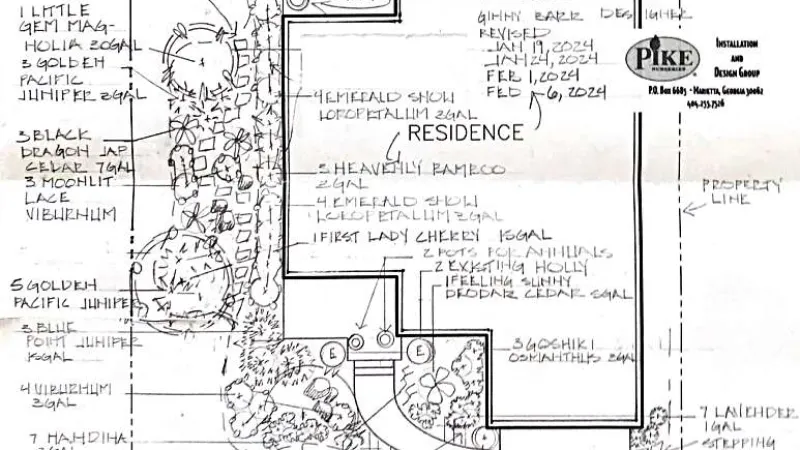 1 LITTLE
GEM MAG-
HOLIA 30GAL
3 GOLDEN
PACIFIC
JUNIPER 3GAL
3 BLACK
DRAGON JAP
CEDAR 7GAL
3 MOONLIT
LACE
VIBURNUM
5 GOLDEN
PACIFIC JUNIPER
3 BLUE
POINT JUNIPER
15GAL
4 VIBURNUM
3GAL
7 NANDINA
GINNY BARR DESIGNER
REVISED
JAN 19, 2024
JAN 24, 2024
FEB 1, 2024
FEB 6, 2024
PIKE
NURSERIES
INSTALLATION
AND
DESIGN GROUP
P.O. Box 6685 - Marietta, Georgia 30062
4 EMERALD SNOW
LOROPETALUM 3GAL
RESIDENCE
3 HEAVENLY BAMBOO
3GAL
4 EMERALD SNOW
LOROPETALUM 3GAL
1 FIRST LADY CHERRY 15GAL
2 POTS FOR ANNUALS
2 EXISTING HOLLY
1 FEELING SUNNY
DEODAR CEDAR 5GAL
E
E
3 GOSHIKI
OSMANTHUS 3GAL
PROPERTY
LINE
7 LAVENDER
1GAL
STEPPING